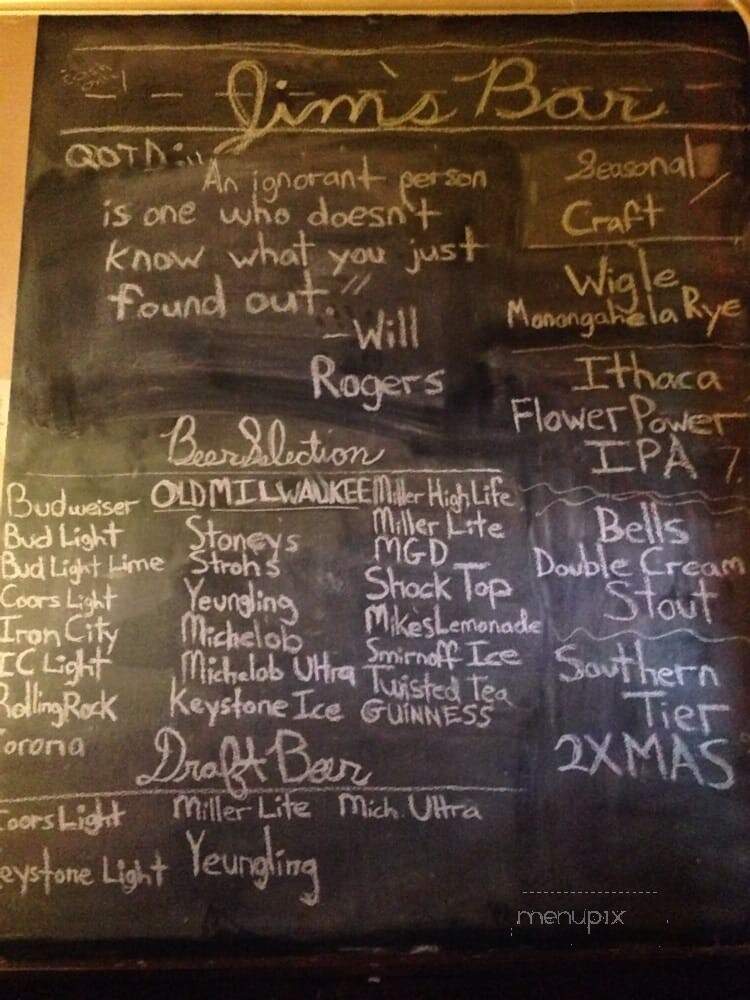 Jim's Bar
QOTD:
An ignorant person
is one who doesn't
know what you just
found out."
-Will
Rogers
Seasonal
Craft
Wigle
Monongahela Rye
Ithaca
Flower Power
IPA 7.
Bells
Double Cream
Stout
Southern
Tier
2XMAS
Beer Selection
Budweiser
Bud Light
Bud Light Lime
Coors Light
Iron City
IC Light
Rolling Rock
Corona
OLD MILWAUKEE
Stoneys
Strohs
Yeungling
Michelob
Michelob Ultra
Keystone Ice
Miller High Life
Miller Lite
MGD
Shock Top
Mikes Lemonade
Smirnoff Ice
Twisted Tea
GUINNESS
Draft Beer
Coors Light Miller Lite Mich. Ultra
Keystone Light Yeungling
menupix